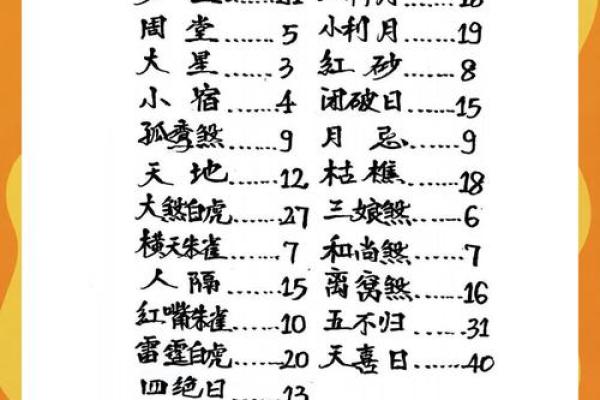 周堂……5 小利月……19
大星……3 紅砂……8
小宿……4 闭破日……15
孤鸾煞……9 月忌……9
天地……12 枯樵……18
大煞白虎……27 三娘煞……6
横天朱雀……7 和尚煞……7
人隔……15 离窝煞……16
红嘴朱雀……10 五不归……31
雷霆白虎……20 天喜日……40
四绝日……13